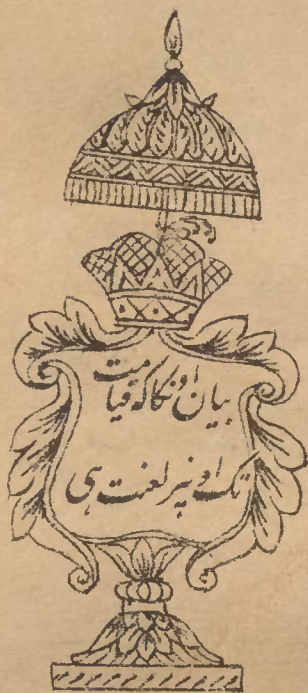 بیان اونکا که قیامت
تک اونپر لعنت ہی